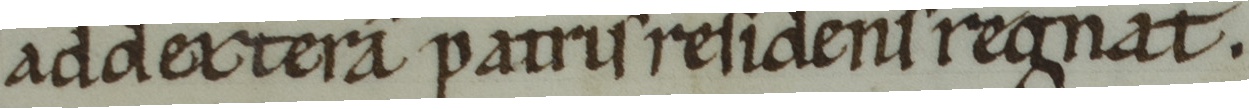 ad dexterã patris residens regnat.